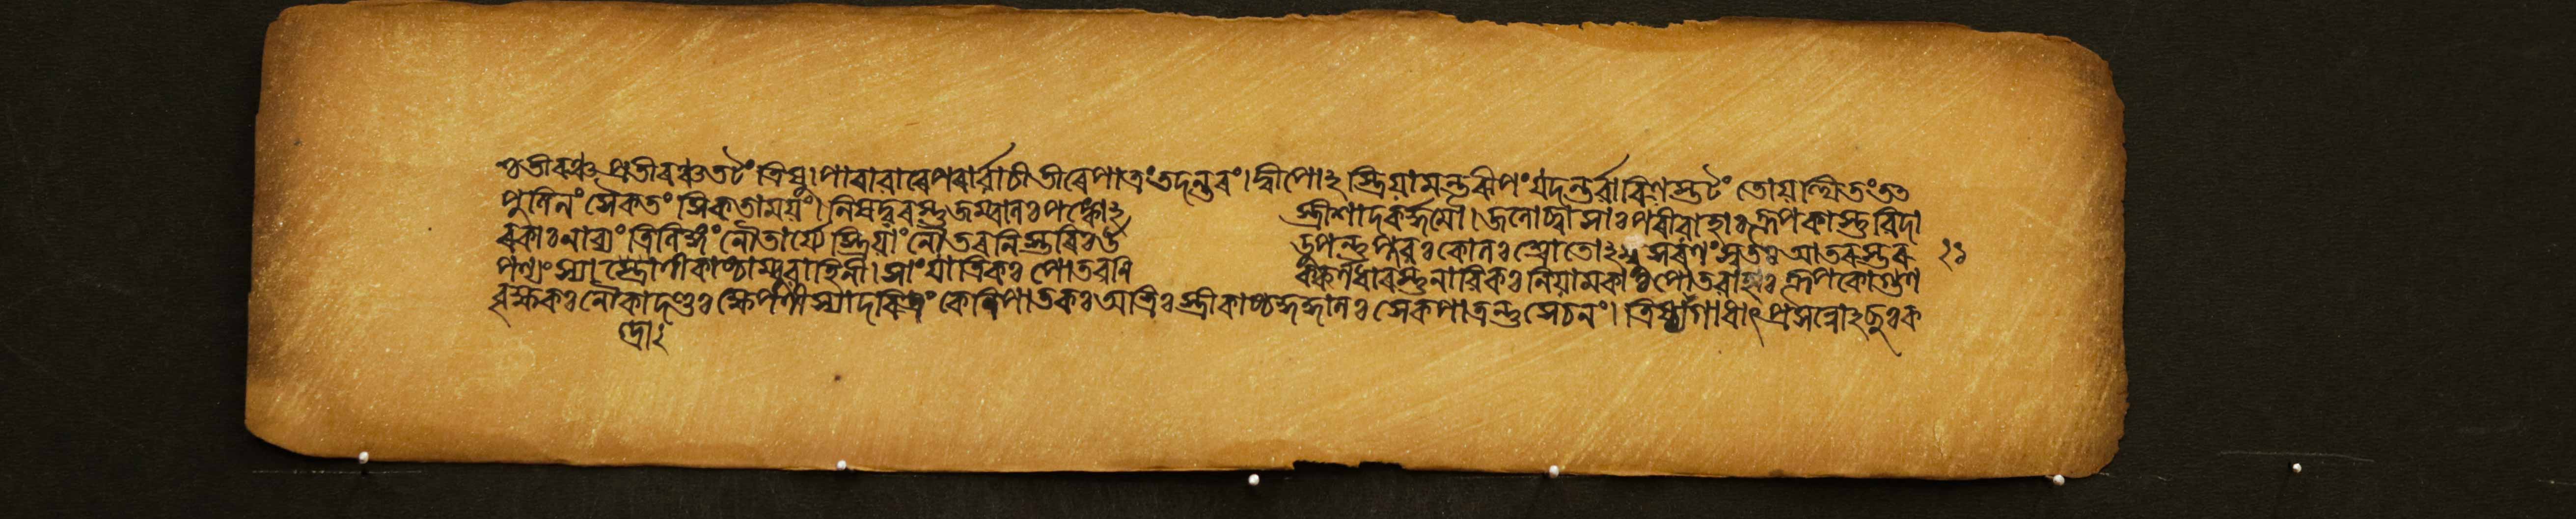 শ্চতীৰঞ্চ প্ৰতীৰঞ্চ তটং ত্ৰিষু। পাৰাবাৰে পৰাৰ্ব্বাচী তীৰে পাত্ৰং তদন্তৰং। দ্বীপোঽস্ত্ৰিয়ামন্তৰীপং যদন্তৰ্ব্বাৰিণস্তটং তোয়োত্থিতং তৎ
পুলিনং সৈকতং সিকতাময়ং। নিষদ্বৰস্তু জম্বালঃ পঙ্কোঽ স্ত্ৰীশাদকৰ্দ্দমৌ। জলোচ্ছ্বাসাঃ পৰীবাহাঃ কূপকাস্তু বিদা
ৰকাঃ নাব্যং ত্ৰিলিঙ্গং নৌতাৰ্য্যে স্ত্ৰিয়াং নৌতৰণিস্তৰিঃ উ ডুপন্তু প্লবঃ কোলঃ স্ৰোতোঽম্বুসৰণং স্বতঃ আতৰস্তৰ ২ঃ
পণ্যং স্যাদ্দ্ৰোণী কাষ্ঠাম্বুবাহিনী। সাংযাত্ৰিকঃ পোতবণি ক্কৰ্ণধাৰস্তু নাবিকঃ নিয়ামকাঃ পোতবাহাঃ কূপকো গুণ
বৃক্ষকঃ নৌকাদণ্ডঃ ক্ষেপণী স্যাদৰিত্ৰং কেনিপাতকঃ অভ্ৰিঃ স্ত্ৰী কাষ্ঠকুদ্দালঃ সেকপাত্ৰন্তু সেচনং। ত্ৰিষ্বাগাধাৎ প্ৰসন্নোঽচ্ছঃ ক